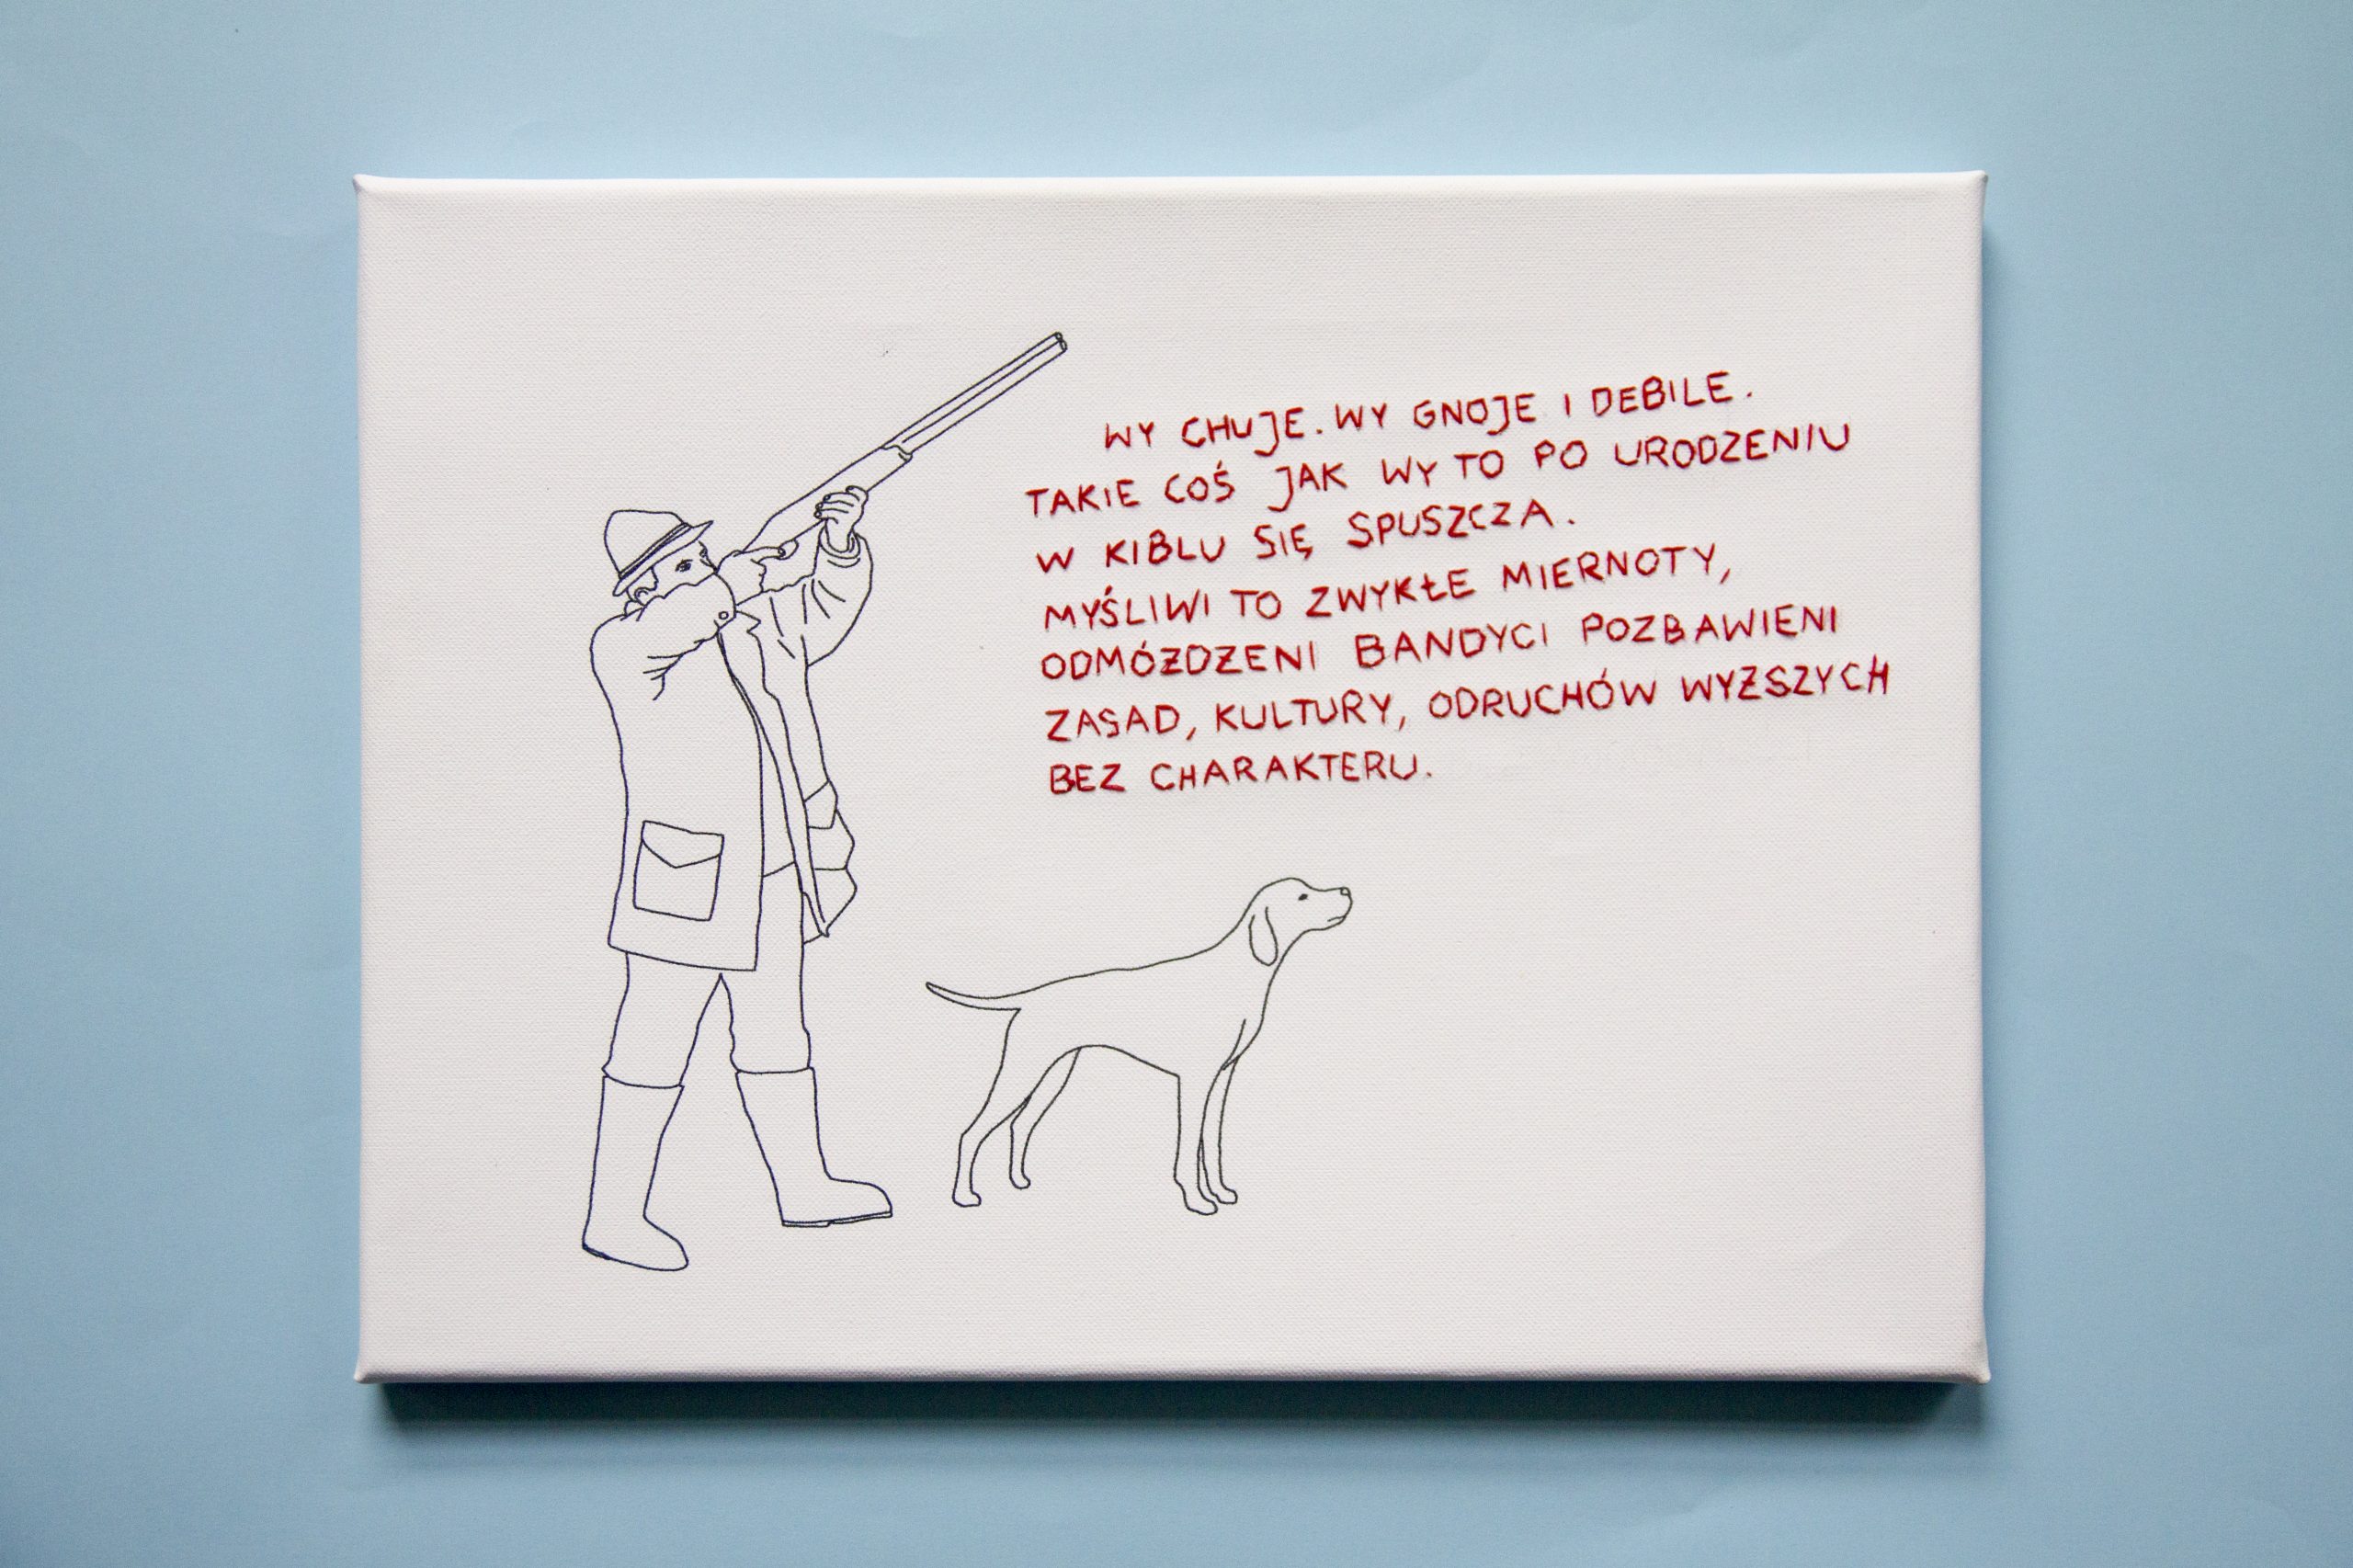 WY CHUJE. WY GNOJE I DEBILE.
TAKIE COŚ JAK WY TO PO URODZENIU
W KIBLU SIĘ SPUSZCZA.
MYŚLIWI TO ZWYKŁE MIERNOTY,
ODMÓŻDŻENI BANDYCI POZBAWIENI
ZASAD, KULTURY, ODRUCHÓW WYŻSZYCH
BEZ CHARAKTERU.